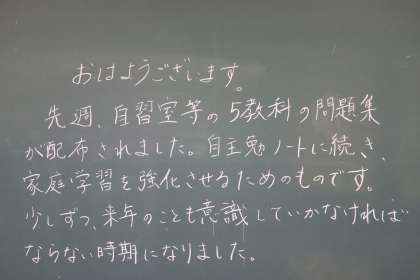 おはようございます。
先週、自習室等の5教科の問題集
が配布されました。自主勉ノートに続き、
家庭学習を強化させるためのものです。
少しずつ、来年のことも意識していかなければ
ならない時期になりました。